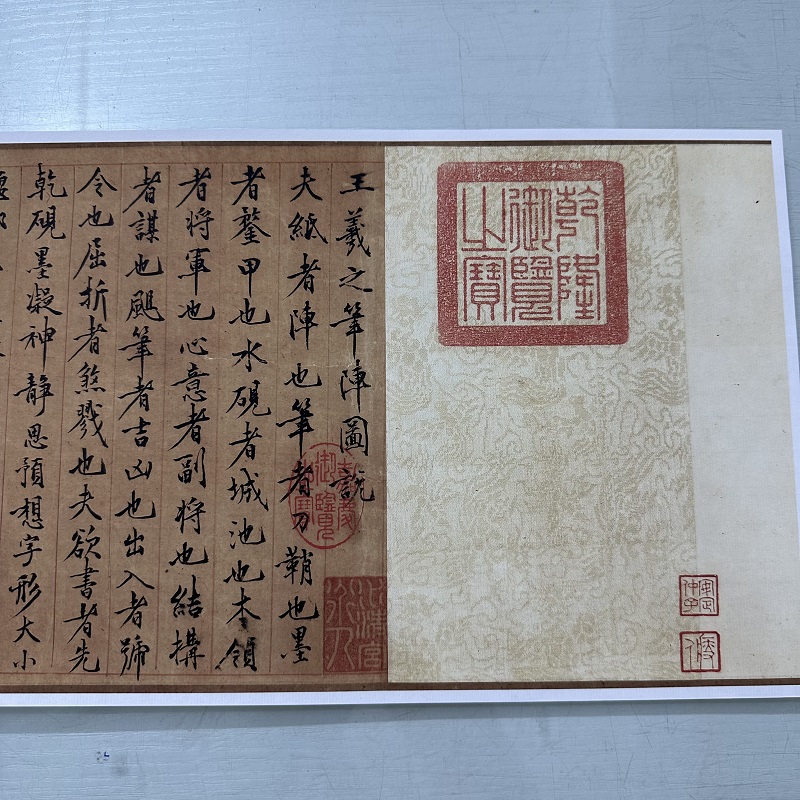 乾隆
御覽
之寶
王羲之筆陣圖說
夫紙者陣也筆者刀鞘也墨
者鍪甲也水硯者城池也本領
者將軍也心意者副將也結構
者謀也颺筆者吉凶也出入者號
令也屈折者煞戮也夫欲書者先
乾硯墨凝神靜思預想字形大小